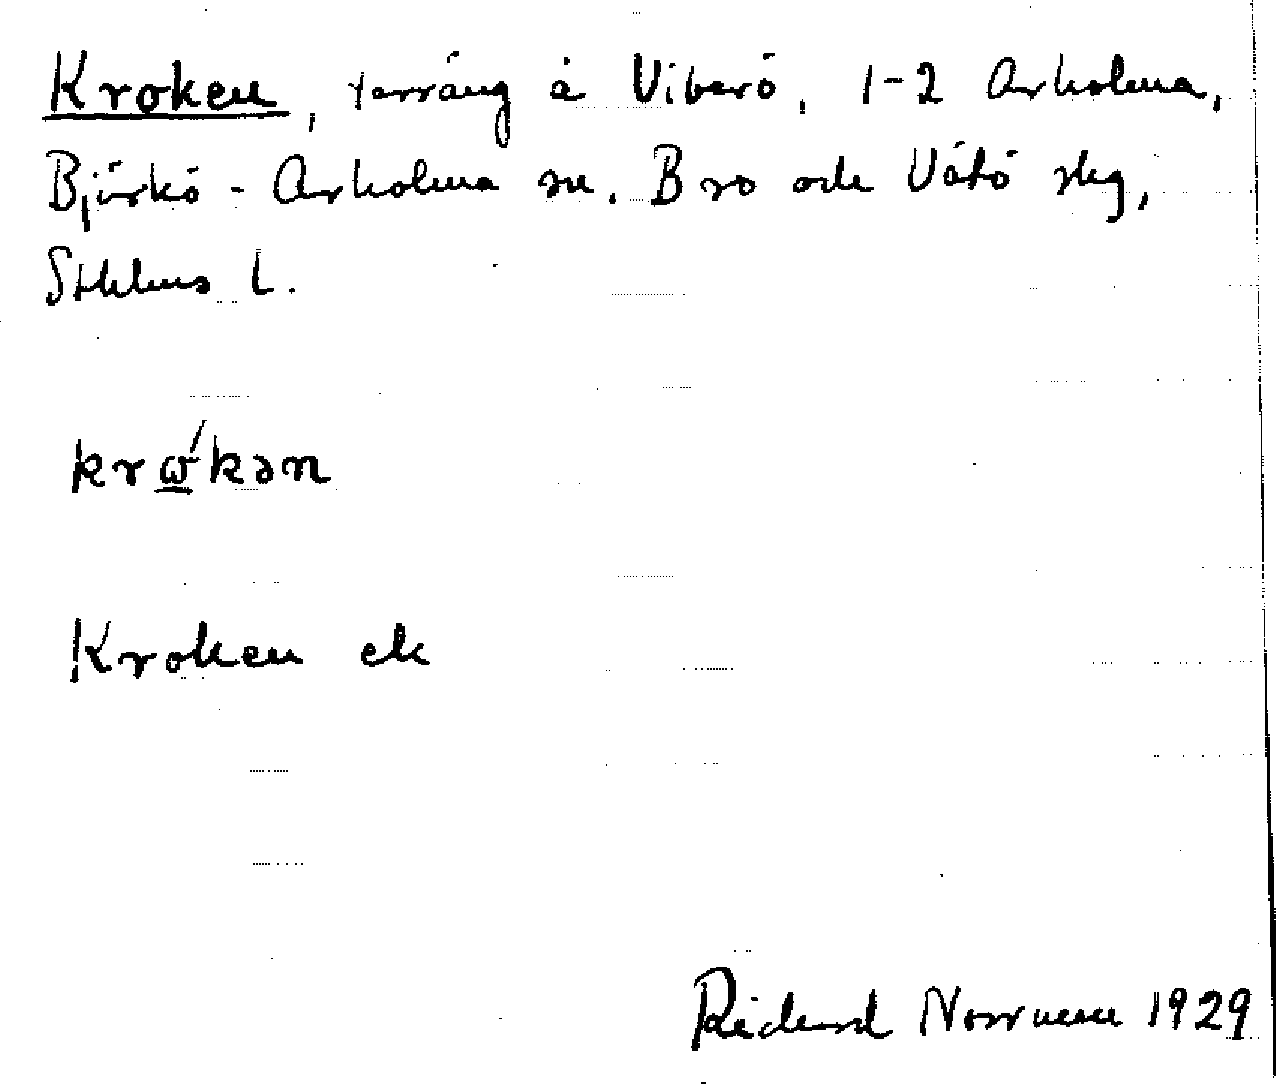 Kroken, terräng å Viberö, 1-2 Arholma,
Björkö - Arholma sn. Bro och Vätö skg,
Sthlms l.
krώ̲kən
Kroken ek
Rickard Norrman 1929